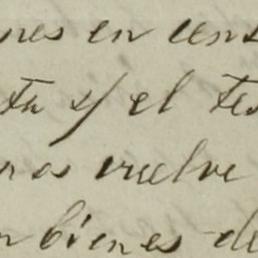 nes en cens
y el tes
ros vuelve
n bienes de